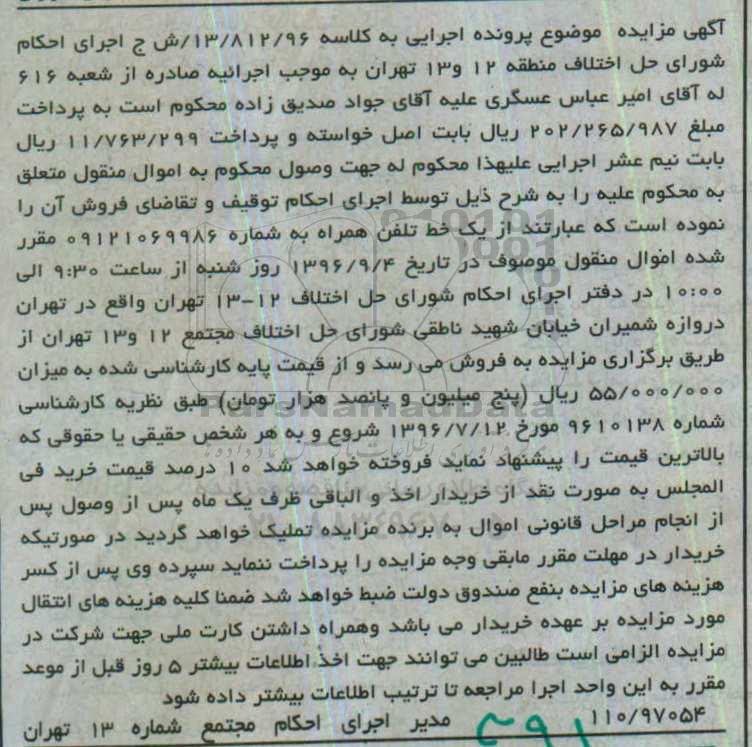 آگهی مزایده موضوع پرونده اجرایی به کلاسه ۱۳/۸۱۲/۹۶/ش ج اجرای احکام
شورای حل اختلاف منطقه ۱۲ و۱۳ تهران به موجب اجرائیه صادره از شعبه ۶۱۶
له آقای امیر عباس عسگری علیه آقای جواد صدیق زاده محکوم است به پرداخت
مبلغ ۲۰۲/۲۶۵/۹۸۷ ریال بابت اصل خواسته و پرداخت ۱۱/۷۶۳/۲۹۹ ریال
بابت نیم عشر اجرایی علیهذا محکوم له جهت وصول محکوم به اموال منقول متعلق
به محکوم علیه را به شرح ذیل توسط اجرای احکام توقیف و تقاضای فروش آن را
نموده است که عبارتند از یک خط تلفن همراه به شماره ۰۹۱۲۱۰۶۹۹۸۶ مقرر
شده اموال منقول موصوف در تاریخ ۱۳۹۶/۹/۴ روز شنبه از ساعت ۹:۳۰ الی
۱۰:۰۰ در دفتر اجرای احکام شورای حل اختلاف ۱۲-۱۳ تهران واقع در تهران
دروازه شمیران خیابان شهید ناطقی شورای حل اختلاف مجتمع ۱۲ و۱۳ تهران از
طریق برگزاری مزایده به فروش می رسد و از قیمت پایه کارشناسی شده به میزان
۵۵/۰۰۰/۰۰۰ ریال (پنج میلیون و پانصد هزار تومان) طبق نظریه کارشناسی
شماره ۹۶۱۰۱۳۸ مورخ ۱۳۹۶/۷/۱۲ شروع و به هر شخص حقیقی یا حقوقی که
بالاترین قیمت را پیشنهاد نماید فروخته خواهد شد ۱۰ درصد قیمت خرید فی
المجلس به صورت نقد از خریدار اخذ و الباقی ظرف یک ماه پس از وصول پس
از انجام مراحل قانونی اموال به برنده مزایده تملیک خواهد گردید در صورتیکه
خریدار در مهلت مقرر مابقی وجه مزایده را پرداخت ننماید سپرده وی پس از کسر
هزینه های مزایده بنفع صندوق دولت ضبط خواهد شد ضمنا کلیه هزینه های انتقال
مورد مزایده بر عهده خریدار می باشد وهمراه داشتن کارت ملی جهت شرکت در
مزایده الزامی است طالبین می توانند جهت اخذ اطلاعات بیشتر ۵ روز قبل از موعد
مقرر به این واحد اجرا مراجعه تا ترتیب اطلاعات بیشتر داده شود
۱۱۰/۹۷۰۵۴ مدیر اجرای احکام مجتمع شماره ۱۳ تهران
ParsNamadData